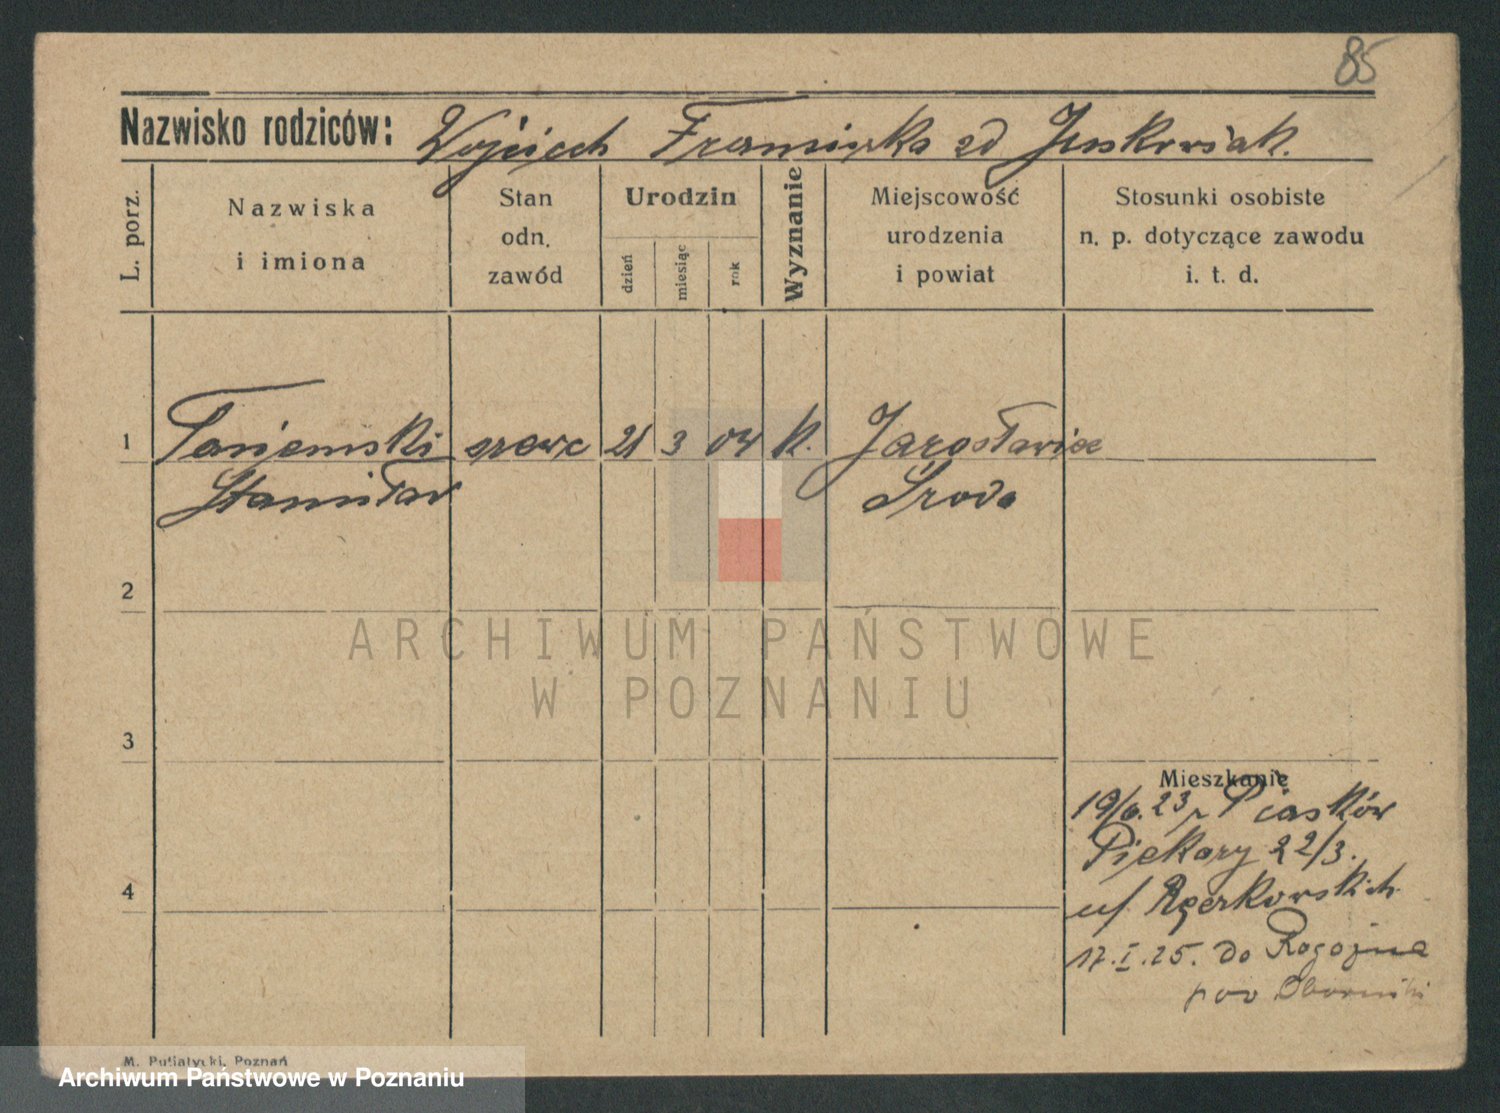 85
Nazwisko rodziców: Wojciech Franciszka zd Juskowiak.
L. porz.
Nazwiska
i imiona
Stan
odn.
zawód
Urodzin
dzień
miesiąc
rok
Wyznanie
Miejscowość
urodzenia
i powiat
Stosunki osobiste
n. p. dotyczące zawodu
i. t. d.
1 Tasiemski szewc 21 3 04 k. Jarosławiec
Stanisław Środa
2
3
4
Mieszkanie
19/6.23 z Piasków
Piekary 22/3.
u/
17.I.25. do Rogoźna
pow Oborniki
M. Putiatycki, Poznań
ARCHIWUM PAŃSTWOWE
W POZNANIU
Archiwum Państwowe w Poznaniu